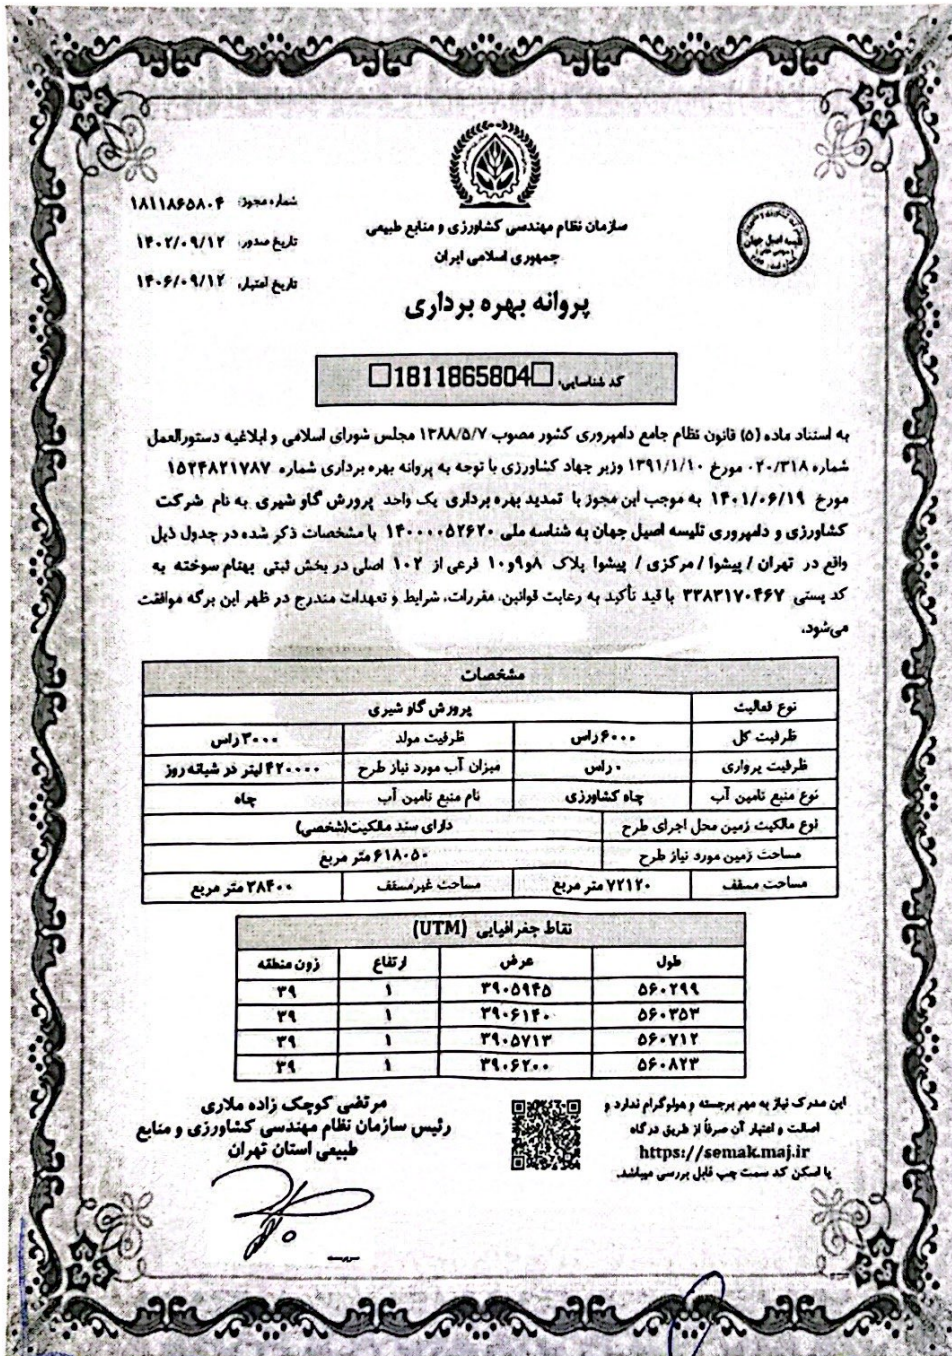 سازمان نظام مهندسی کشاورزی و منابع طبیعی
جمهوری اسلامی ایران
پروانه بهره برداری
شماره مجوز: ۱۸۱۱۸۶۵۸۰۴
تاریخ صدور: ۱۴۰۲/۰۹/۱۲
تاریخ اعتبار: ۱۴۰۶/۰۹/۱۲
تلیسه اصیل جهان
کد شناسایی: 1811865804
به استناد ماده (۵) قانون نظام جامع دامپروری کشور مصوب ۱۳۸۸/۵/۷ مجلس شورای اسلامی و ابلاغیه دستورالعمل
شماره ۰۲۰/۳۱۸ مورخ ۱۳۹۱/۱/۱۰ وزیر جهاد کشاورزی با توجه به پروانه بهره برداری شماره ۱۵۲۴۸۲۱۷۸۷
مورخ ۱۴۰۱/۰۶/۱۹ به موجب این مجوز با تمدید بهره برداری یک واحد پرورش گاو شیری به نام شرکت
کشاورزی و دامپروری تلیسه اصیل جهان به شناسه ملی ۱۴۰۰۰۰۵۲۶۲۰ با مشخصات ذکر شده در جدول ذیل
واقع در تهران / پیشوا / مرکزی / پیشوا پلاک ۸و۹و۱۰ فرعی از ۱۰۲ اصلی در بخش ثبتی بهنام سوخته به
کد پستی ۳۳۸۳۱۷۰۴۶۷ با قید تأکید به رعایت قوانین، مقررات، شرایط و تعهدات مندرج در ظهر این برگه موافقت
می‌شود.
مشخصات
نوع فعالیت پرورش گاو شیری
ظرفیت کل ۶۰۰۰ راس ظرفیت مولد ۳۰۰۰ راس
ظرفیت پرواری ۰ راس میزان آب مورد نیاز طرح ۴۲۰۰۰۰ لیتر در شبانه روز
نوع منبع تامین آب چاه کشاورزی نام منبع تامین آب چاه
نوع مالکیت زمین محل اجرای طرح دارای سند مالکیت(شخصی)
مساحت زمین مورد نیاز طرح ۶۱۸۰۵۰ متر مربع
مساحت مسقف ۷۲۱۲۰ متر مربع مساحت غیرمسقف ۲۸۴۰۰ متر مربع
نقاط جغرافیایی (UTM)
طول عرض ارتفاع زون منطقه
۵۶۰۲۹۹ ۳۹۰۵۹۴۵ ۱ ۳۹
۵۶۰۳۵۳ ۳۹۰۶۱۴۰ ۱ ۳۹
۵۶۰۷۱۲ ۳۹۰۵۷۱۳ ۱ ۳۹
۵۶۰۸۲۳ ۳۹۰۶۲۰۰ ۱ ۳۹
این مدرک نیاز به مهر برجسته و هولوگرام ندارد و
اصالت و اعتبار آن صرفاً از طریق درگاه
https://semak.maj.ir
یا اسکن کد سمت چپ قابل بررسی میباشد.
مرتضی کوچک زاده ملاری
رئیس سازمان نظام مهندسی کشاورزی و منابع
طبیعی استان تهران